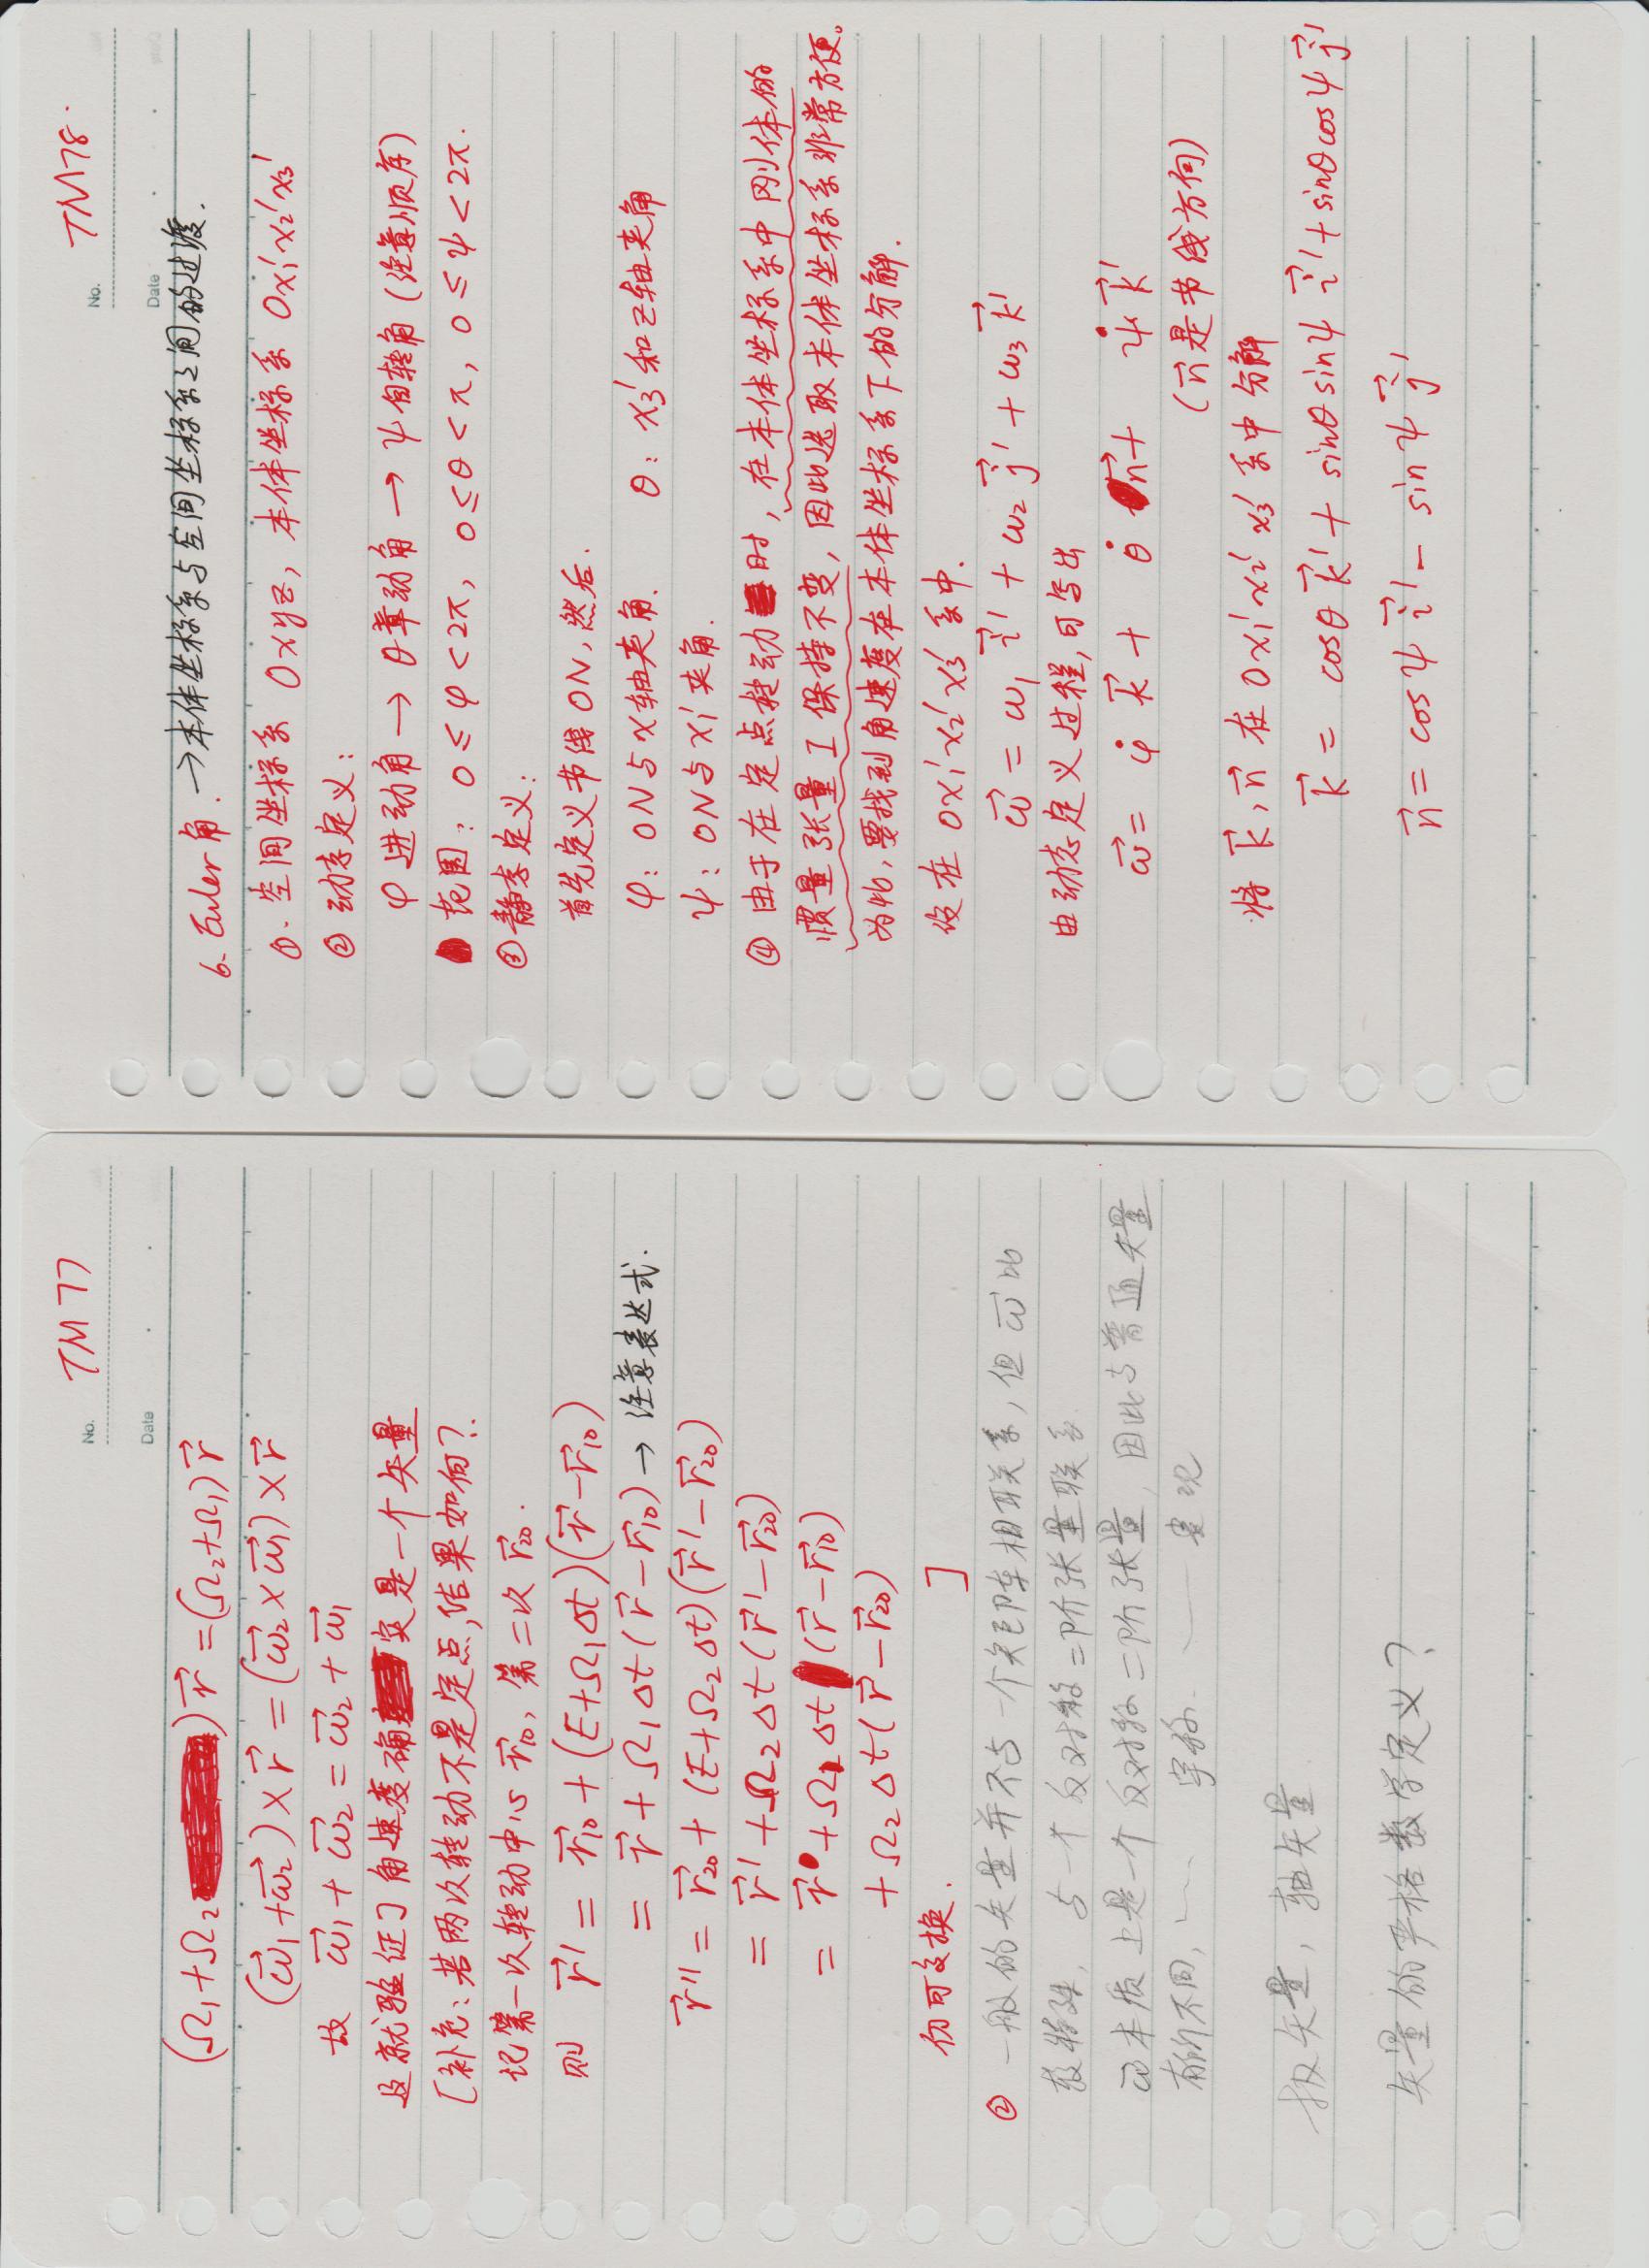 No. TM 77
Date
(Ω₁+Ω₂)r⃗ = (Ω₂+Ω₁)r⃗
(ω⃗₁+ω⃗₂)×r⃗ = (ω⃗₂×ω⃗₁)×r⃗
故 ω⃗₁+ω⃗₂ = ω⃗₂+ω⃗₁
这就验证了角速度确实是一个矢量
[补充:若两次转动不是定点,结果如何?
记第一次转动中心 r⃗₁₀, 第二次 r⃗₂₀.
则 r⃗′ = r⃗₁₀ + (E+Ω₁Δt)(r⃗−r⃗₁₀)
= r⃗ + Ω₁Δt(r⃗−r⃗₁₀) → 注意表达式.
r⃗″ = r⃗₂₀ + (E+Ω₂Δt)(r⃗′−r⃗₂₀)
= r⃗′ + Ω₂Δt(r⃗′−r⃗₂₀)
= r⃗ + Ω₁Δt(r⃗−r⃗₁₀)
+ Ω₂Δt(r⃗−r⃗₂₀)
仍可交换. ]
② 一般的矢量并不与一个矩阵相联系,但 ω⃗ 比
较特殊, 与一个反对称二阶张量联系
ω⃗本质上是一个反对称二阶张量, 因此与普通矢量
有所不同, 宇称
极矢量, 轴矢量
矢量的严格数学定义?
No. TM78.
Date
6. Euler角. →本体坐标系与空间坐标系之间的过渡.
①. 空间坐标系 Oxyz, 本体坐标系 Ox₁′x₂′x₃′
② 动态定义:
φ 进动角 → θ章动角 → ψ 自转角 (注意顺序)
范围: 0 ≤ φ < 2π, 0 ≤ θ < π, 0 ≤ ψ < 2π.
③ 静态定义:
首先定义节线 ON, 然后.
φ: ON与x轴夹角. θ: x₃′和z轴夹角
ψ: ON与x₁′夹角.
④ 由于在定点转动时, 在本体坐标系中刚体的
惯量张量 I 保持不变, 因此选取本体坐标系非常方便。
为此, 要找到角速度在本体坐标系下的分解.
设在 Ox₁′x₂′x₃′ 系中.
ω⃗ = ω₁ i⃗′ + ω₂ j⃗′ + ω₃ k⃗′
由动态定义过程, 可写出
ω⃗ = φ̇ k⃗ + θ̇ n⃗ + ψ̇ k⃗′
(n⃗ 是节线方向)
将 k⃗, n⃗ 在 Ox₁′x₂′x₃′ 系中分解
k⃗ = cosθ k⃗′ + sinθ sinψ i⃗′ + sinθ cosψ j⃗′
n⃗ = cosψ i⃗′ − sinψ j⃗′